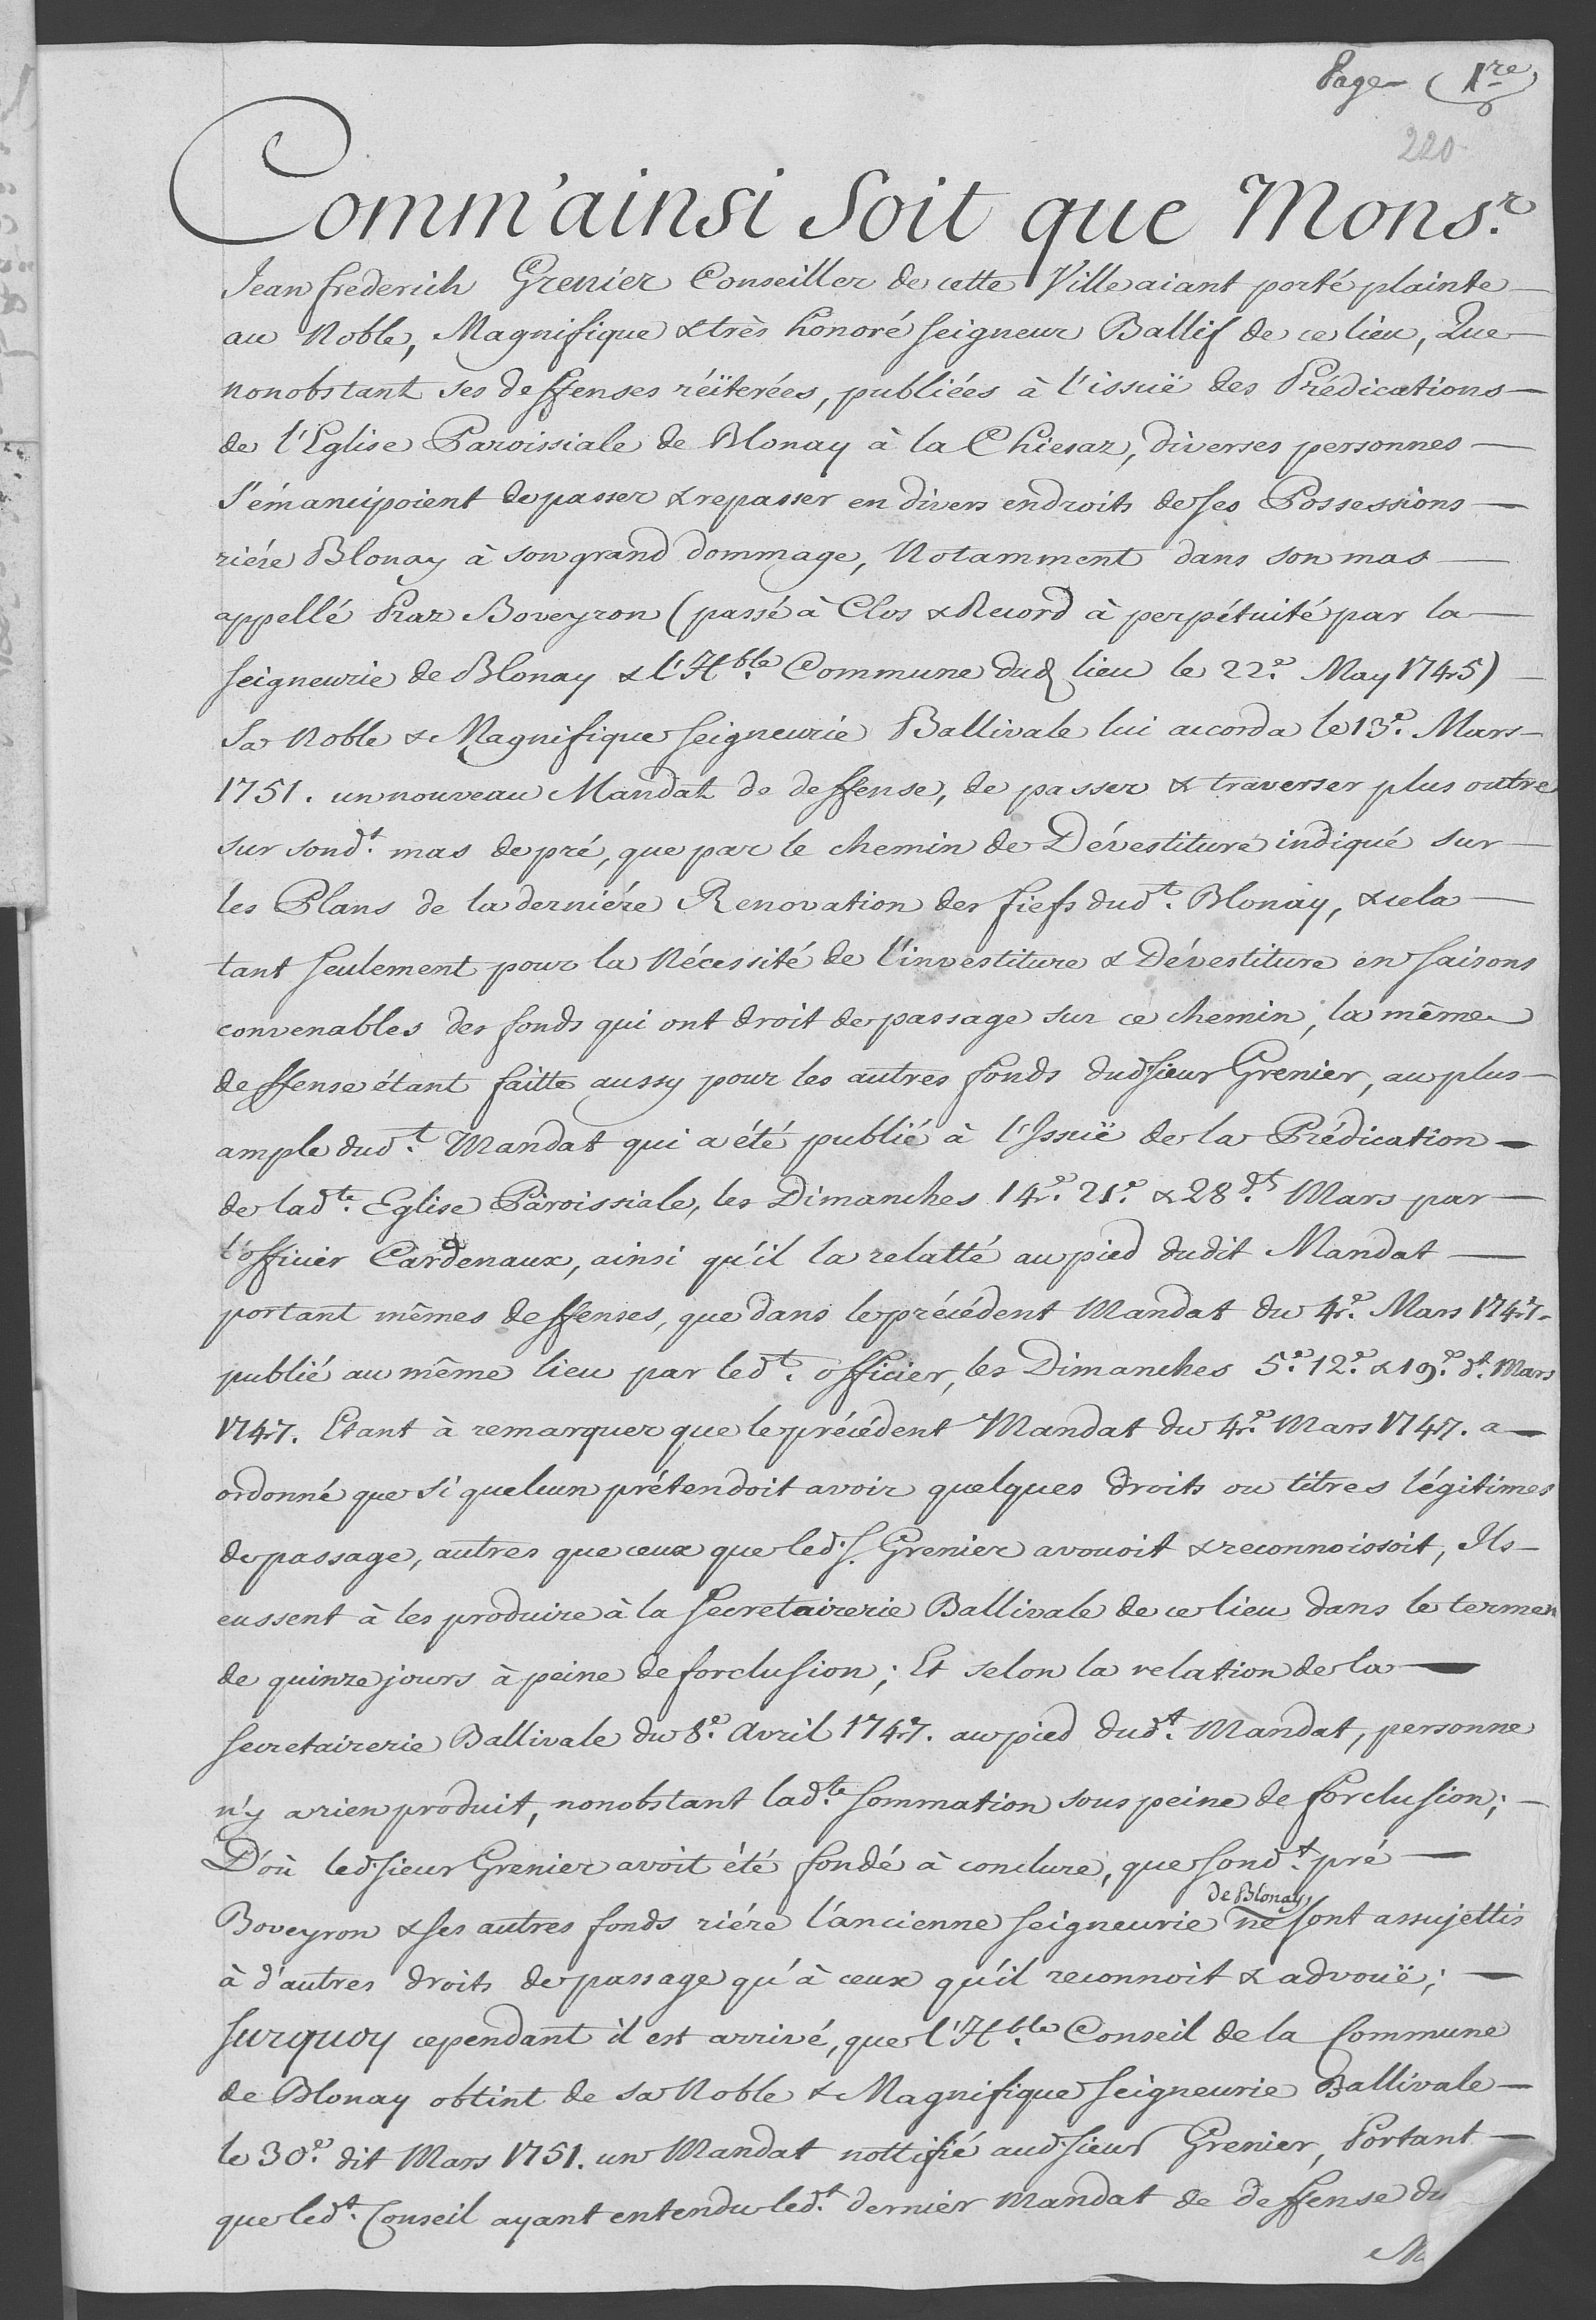 Page 1.re
220
Comm'ainsi Soit que Mons.r
Jean frederich Grenier Conseiller de cette Ville aiant porté plainte
au Noble, Magnifique & très honoré Seigneur Ballif de ce lieu, Que
nonobstant ses deffenses réïterées, publiées à l'issuë des Prédications
de l'Eglise Paroissiale de Blonay à la Chiesaz, diverses personnes
S'émancipoient de passer & repasser en divers endroits de ses Possessions
riére Blonay à son grand dommage, Notamment dans son mas
appellé Praz Boveyron (passé à Clos & Record à perpétuité par la
Seigneurie de Blonay & l'H.ble Commune dud lieu le 22.e May 1745)
Sa Noble & Magnifique Seigneurie Ballivale lui accorda le 13.e Mars
1751. un nouveau Mandat de deffense, de passer & traverser plus outre
sur sond.t mas de pré, que par le chemin de Dévestiture indiqué sur
les Plans de la derniére Renovation des fiefs dud.t Blonay, & cela
tant Seulement pour la Nécessité de l'investiture & Dévestiture en Saisons
convenables des fonds qui ont droit de passage sur ce chemin, la même
deffense étant faitte aussy pour les autres fonds dud Sieur Grenier, au plus
ample dud.t Mandat qui a été publié à l'Issuë de la Prédication
de lad.te Eglise Paroissiale, les Dimanches 14.e 21.e & 28.e d.t Mars par
l'officier Cardenaux, ainsi qu'il la relatté au pied dudit Mandat
portant mêmes deffenses, que dans le précédent Mandat du 4.e Mars 1747.
publié au même lieu par led.t officier, les Dimanches 5.e 12.e & 19.e d.t Mars
1747. Etant à remarquer que le précédent Mandat du 4.e Mars 1747. a
ordonné que si quelcun prétendoit avoir quelques droits ou titres légitimes
de passage, autres que ceux que led. S. Grenier avouoit & reconnoissoit, Ils
eussent à les produire à la Secretairerie Ballivale de ce lieu dans le terme
de quinze jours à peine de forclusion; Et selon la relation de la
Secretairerie Ballivale du 8.e Avril 1747. au pied dud.t Mandat, personne
n'y a rien produit, nonobstant lad.te Sommation sous peine de forclusion;
D'où led. Sieur Grenier avoit été fondé à conclure, que Sond.t pré
de Blonay
Boveyron & ses autres fonds riére l'ancienne Seigneurie ne Sont assujettis
à d'autres droits de passage qu'à ceux qu'il reconnoit & advouë;
Surquoy cependant il est arrivé, que l'H.ble Conseil de la Commune
de Blonay obtint de sa Noble & Magnifique Seigneurie Ballivale
le 30.e dit Mars 1751. un Mandat nottifié aud. Sieur Grenier, Portant
que led.t Conseil ayant entendu led.t dernier Mandat de deffense du